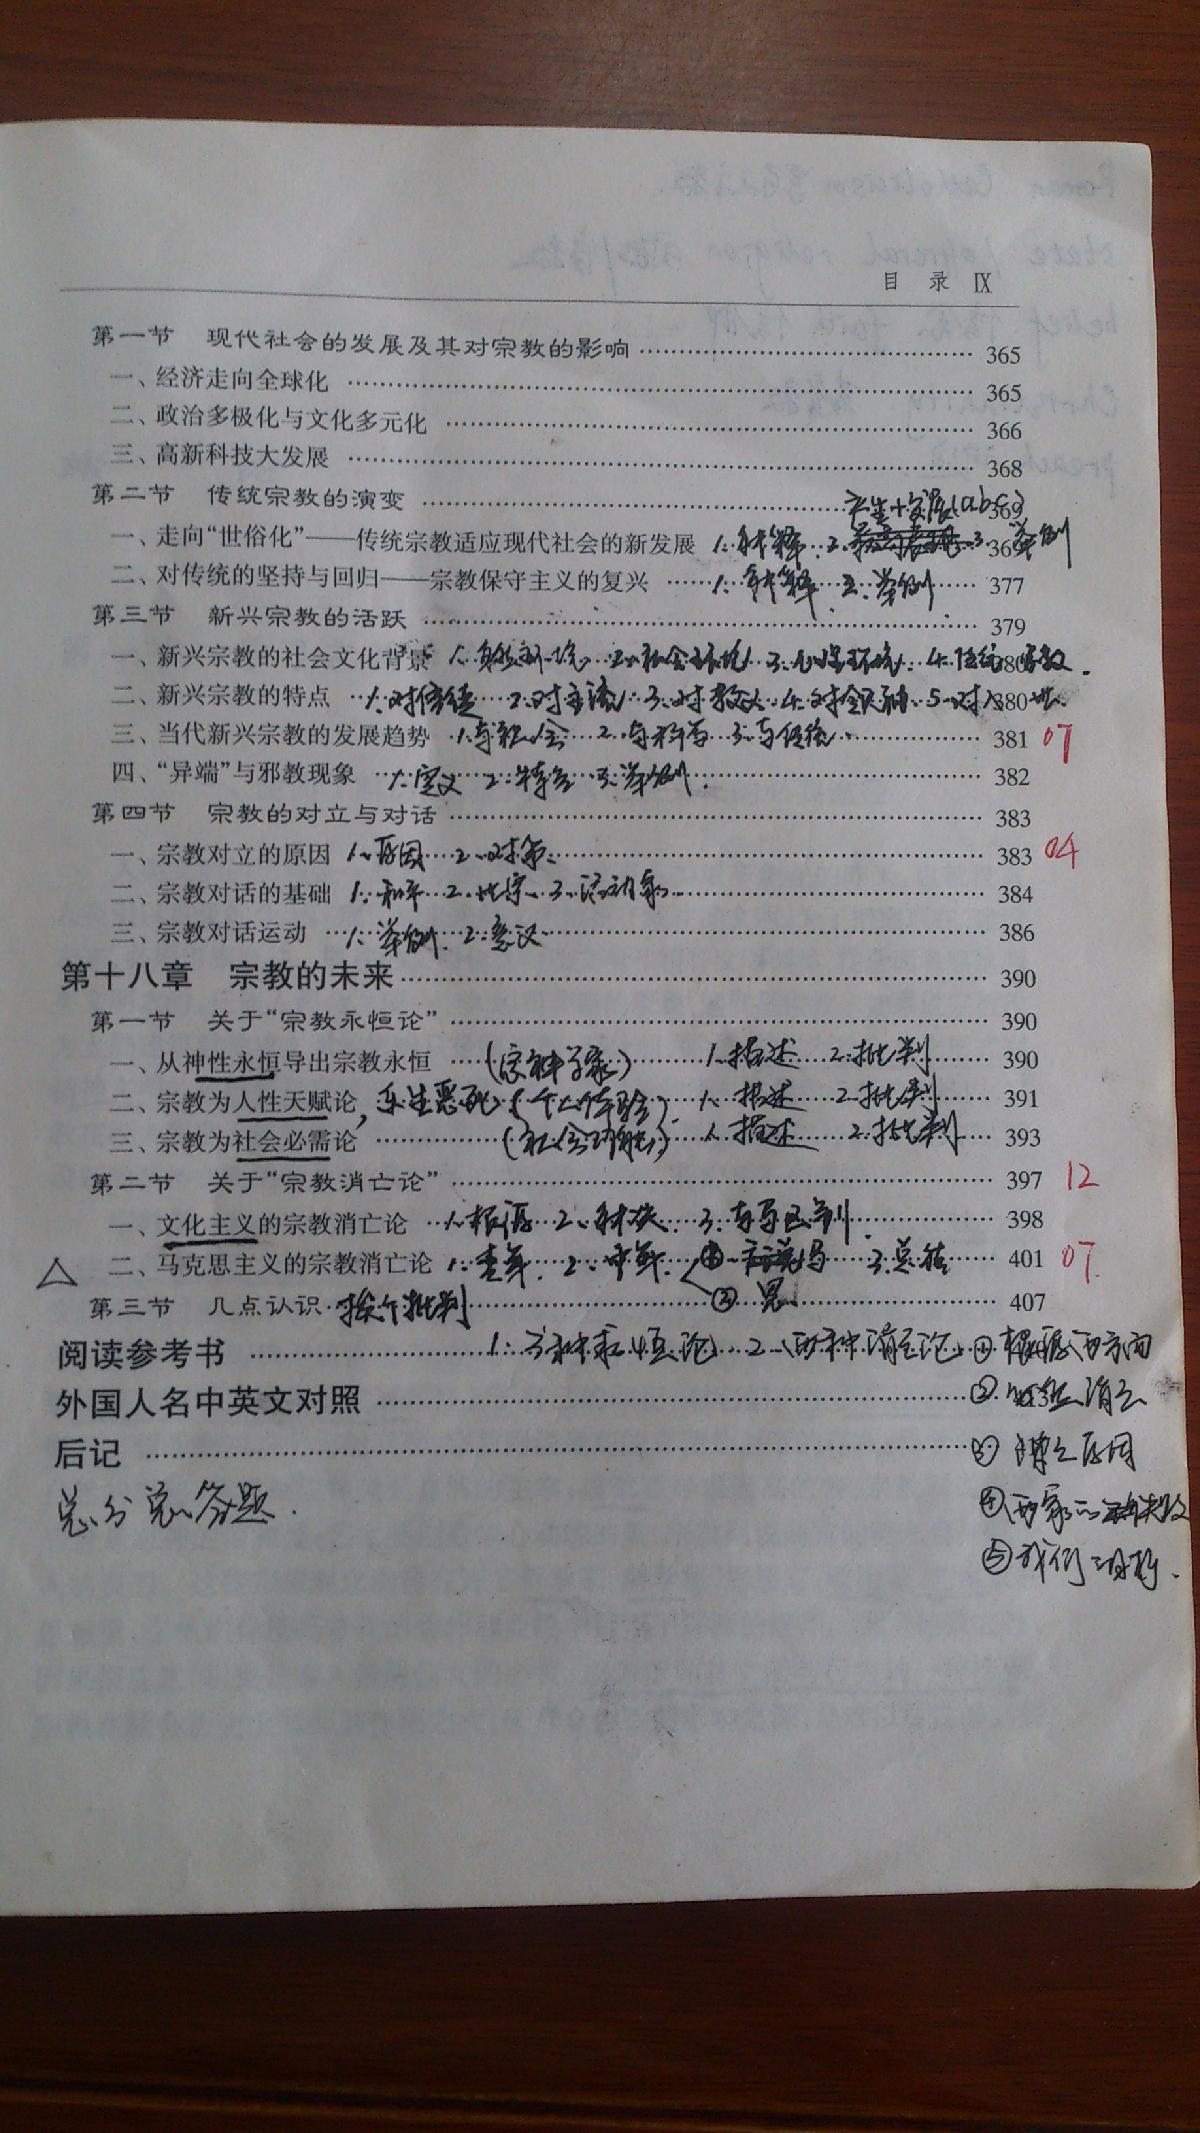 目 录 Ⅸ
第一节 现代社会的发展及其对宗教的影响 365
一、经济走向全球化 365
二、政治多极化与文化多元化 366
三、高新科技大发展 368
产生+发展(abc)
第二节 传统宗教的演变 369
一、走向“世俗化”——传统宗教适应现代社会的新发展 1. 解释 2. 3. 举例 36
二、对传统的坚持与回归——宗教保守主义的复兴 1. 解释 2. 举例 377
第三节 新兴宗教的活跃 379
一、新兴宗教的社会文化背景 1. 2. 社会环境 3. 心理环境 4. 传统宗教. 380
二、新兴宗教的特点 1. 对传统 2. 对主流 3. 对教义 4. 对 5. 对入世. 380
三、当代新兴宗教的发展趋势 1. 与社会 2. 与科学 3. 与传统 381 07
四、“异端”与邪教现象 1. 定义 2. 特点 3. 举例. 382
第四节 宗教的对立与对话 383
一、宗教对立的原因 1. 原因 2. 对策. 383 04
二、宗教对话的基础 1. 和平 2. 3. 活动家 384
三、宗教对话运动 1. 举例. 2. 意义 386
第十八章 宗教的未来 390
第一节 关于“宗教永恒论” 390
一、从神性永恒导出宗教永恒 (宗神学家) 1. 描述 2. 批判 390
二、宗教为人性天赋论, 乐生恶死 (个人体验) 1. 描述 2. 批判 391
三、宗教为社会必需论 (社会功能) 1. 描述 2. 批判 393
第二节 关于“宗教消亡论” 397 12
一、文化主义的宗教消亡论 1. 根源 2. 3. 与马区别. 398
△ 二、马克思主义的宗教消亡论 1. 青年. 2. 中年. ① 马 3. 总结 401 07
第三节 几点认识 挨个批判 ② 恩 407
阅读参考书 1. 3种永恒论 2. 两种消亡论 ① 根源两方面
外国人名中英文对照 ② 消亡
后记 ③ 原因
总分总答题. ④ 两家
⑤ 我们